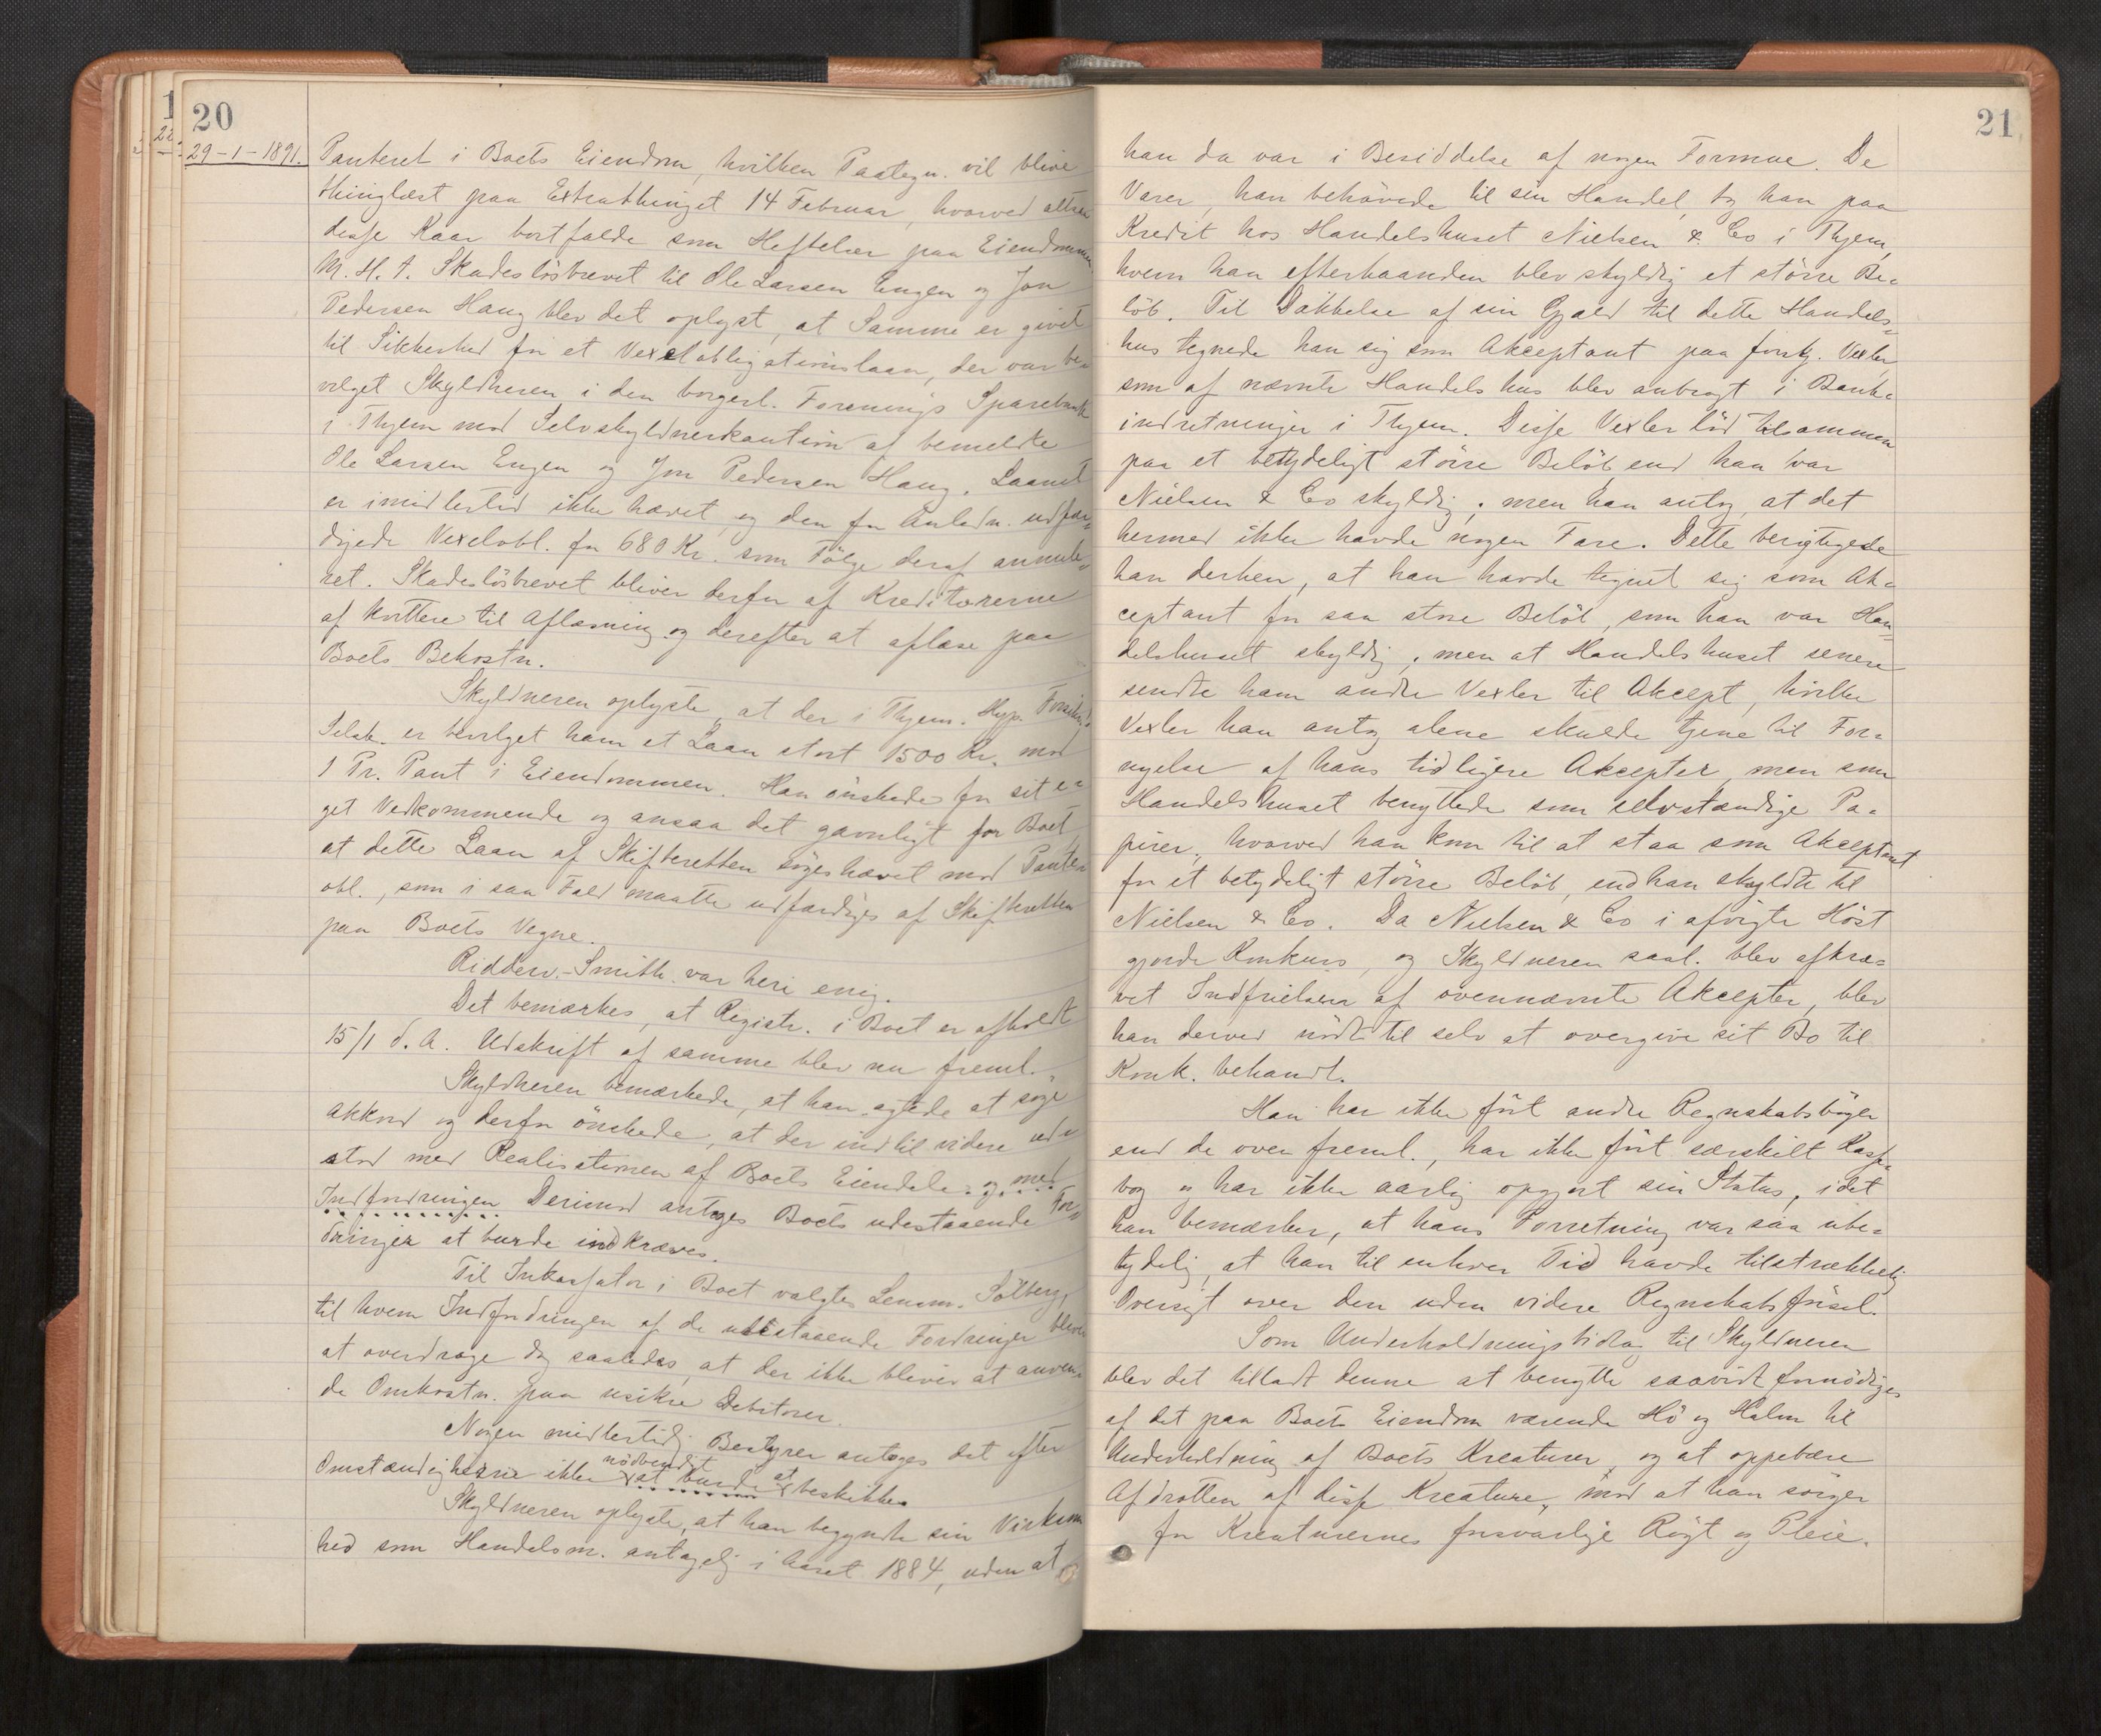 20
29-1-1891.
Panteret i Boets Eiendom, hvilken Paategn. vil blive
thinglæst paa Extrathinget 14 Februar, hvorved altsaa
disse Kaar bortfalde som Heftelser paa Eiendommen.
M. H. t. Skadeslösbrevet til Ole Larsen Engen og Jon
Pedersen Haug blev det oplyst, at Samme er givet
til Sikkerhed for et Vexelobligationslaan, der var be-
vilget Skyldneren i den borgerl. Forenings Sparebank
i Thjem mod Selvskyldnerkaution af bemeldte
Ole Larsen Engen og Jon Pedersen Haug. Laanet
er imidlertid ikke hævet og den i den Anledn. udfær-
digede Vexelobl. for 680 Kr. som Fölge deraf annule-
ret. Skadeslösbrevet bliver derfor af Kreditorerne
at kvittere til Aflæsning og derefter at aflæse paa
Boets Bekostn.
Skyldneren oplyste, at der i Thjems. Hyp. Forsikr.
Selsk. er bevilget ham et Laan stort 1500 Kr. mod
1 Pr. Pant i Eiendommen. Han önskede for sit e-
get Vedkommende og ansaa det gavnligt for Boet
at dette Laan af Skifteretten söges hævet mod Pante-
obl., som i saa Fald maatte udfærdiges af Skifteretten
paa Boets Vegne.
Ridderv.-Smith var heri enig.
Det bemærkes, at Registr. i Boet er afholdt
15/1 d. A. Udskrift af samme blev nu freml.
Skyldneren bemærkede, at han agtede at söge
Akkord og derfor önskede, at der indtil videre ud-
stod med Realisationen af Boets Eiendele og med
Indfordringen Derimod antoges Boets udestaaende For-
dringer at burde indkræves.
Til Inkassator i Boet valgtes Lensm. Sölberg,
til hvem Indfordringen af de udestaaende Fordringer bliver
at overdrage dog saaledes, at der ikke bliver at anven-
de Omkostn. paa usikre Debitorer.
Nogen midlertidig Bestyrer antoges det efter
nödvendigt at
Omstændighederne ikke at burde beskikkes
Skyldneren oplyste, at han begyndte sin Virksom
hed som Handelsm. antagelig i Aaret 1884, uden at
21
han da var i Besiddelse af nogen Formue. De
Varer, han behövede til sin Handel, tog han paa
Kredit hos Handelshuset Nielsen & Co i Thjem,
hvem han efterhaanden blev skyldig et större Be-
löb. Til Dækkelse af sin Gjæld til dette Handels-
hus tegnede han sig som Akceptant paa forskj. Vexler
som af nævnte Handelshus blev anbragt i Bank-
indretninger i Thjem. Disse Vexler löd tilsammen
paa et betydeligt större Belöb end han var
Nielsen & Co skyldig; men han antog, at det
hermed ikke havde nogen Fare. Dette berigtigede
han derhen, at han havde tegnet sig som Ak-
ceptant for saa store Belöb, som han var Han-
delshuset skyldig; men at Handelshuset senere
sendte ham andre Vexler til Akcept, hvilke
Vexler han antog alene skulde tjene til For-
nyelse af hans tidligere Akcepter, men som
Handelshuset benyttede som selvstændige Pa-
pirer, hvorved han kom til at staa som Akceptant
for et betydeligt större Belöb, end han skyldte til
Nielsen & Co. Da Nielsen & Co i afvigte Höst
gjorde Konkurs, og Skyldneren saal. blev afkræ-
vet Indfrielsen af ovennævnte Akcepter, blev
han derved nödt til selv at overgive sit Bo til
Konk. behandl.
Han har ikke fört andre Regnskabsböger
end de over freml., har ikke fört særskilt Kasse-
bog og har ikke aarlig opgjort sin Status, idet
han bemærker, at hans Forretning var saa ube-
tydelig, at han til enhver Tid havde tilstrækkelig
Oversigt over den uden videre Regnskabsförsel.
Som Underholdningsbidrag til Skyldneren
blev det tilladt denne at benytte saavidt fornödiges
af det paa Boets Eiendom værende Hö og Halm til
Underholdning af Boets Kreaturer, og at oppebære
Afdrotten af disse Kreature, mod at han sörger
for Kreaturernes forsvarlige Rögt og Pleie.